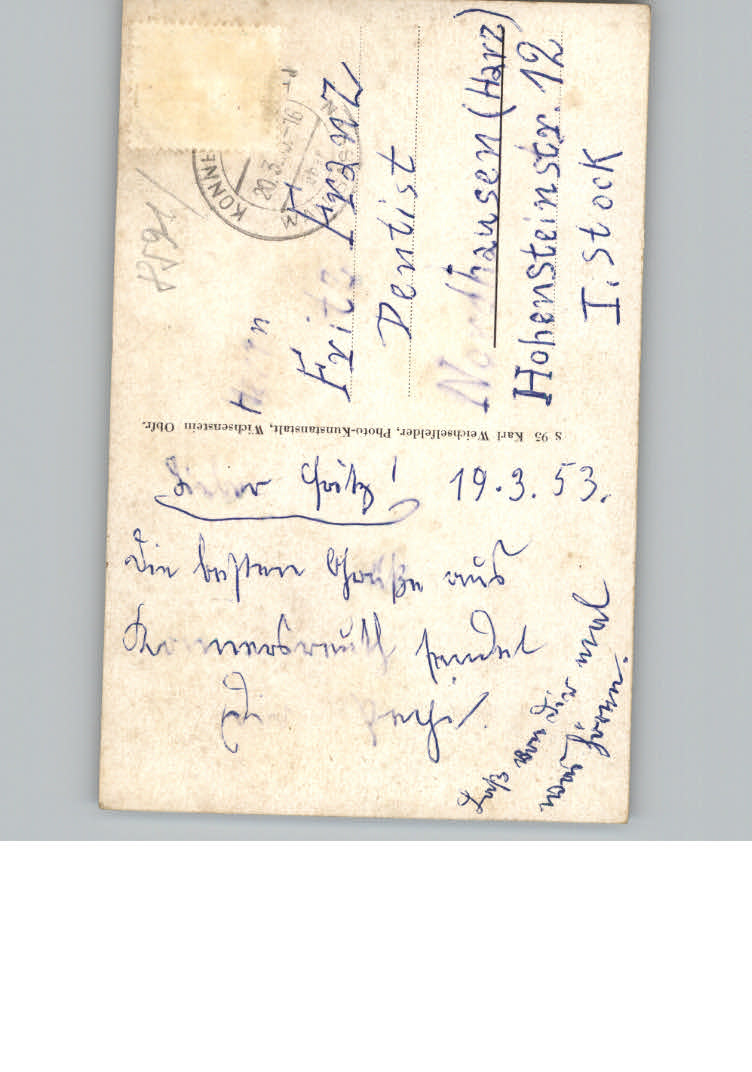 Lieber Fritz! 19.3.53.
Die besten Grüße aus
Konnersreuth sendet
Laß von Dir mal
was hören.
S 95 Karl Weichselfelder, Photo-Kunstanstalt, Wichsenstein Obfr.
Herrn
Fritz
Dentist
Nordhausen (Harz)
Hohensteinstr. 12
I. Stock
KONNE
20.3.